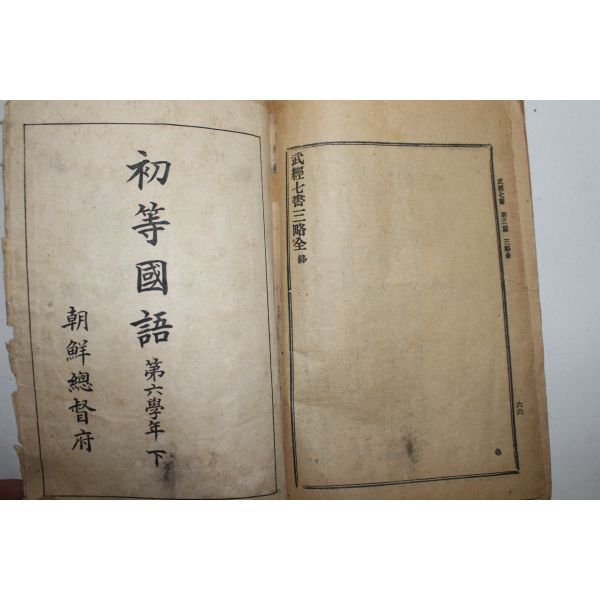 武經七書 第三篇 三略全
六六
武經七書三略全 終
初等國語 第六學年 下
朝鮮總督府